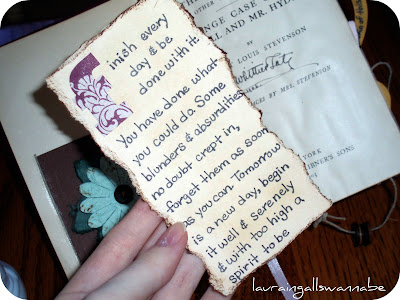 inish every
day & be
done with it.
You have done what
you could do. Some
blunders & absurdities
no doubt crept in,
forget them as soon
as you can. Tomorrow
is a new day, begin
it well & serenely
& with too high a
spirit to be
NGE CASE
LL AND MR. HYD
LOUIS STEVENSON
BY MRS. STEVENSON
YORK
BNER'S SONS
lauraingallswannabe